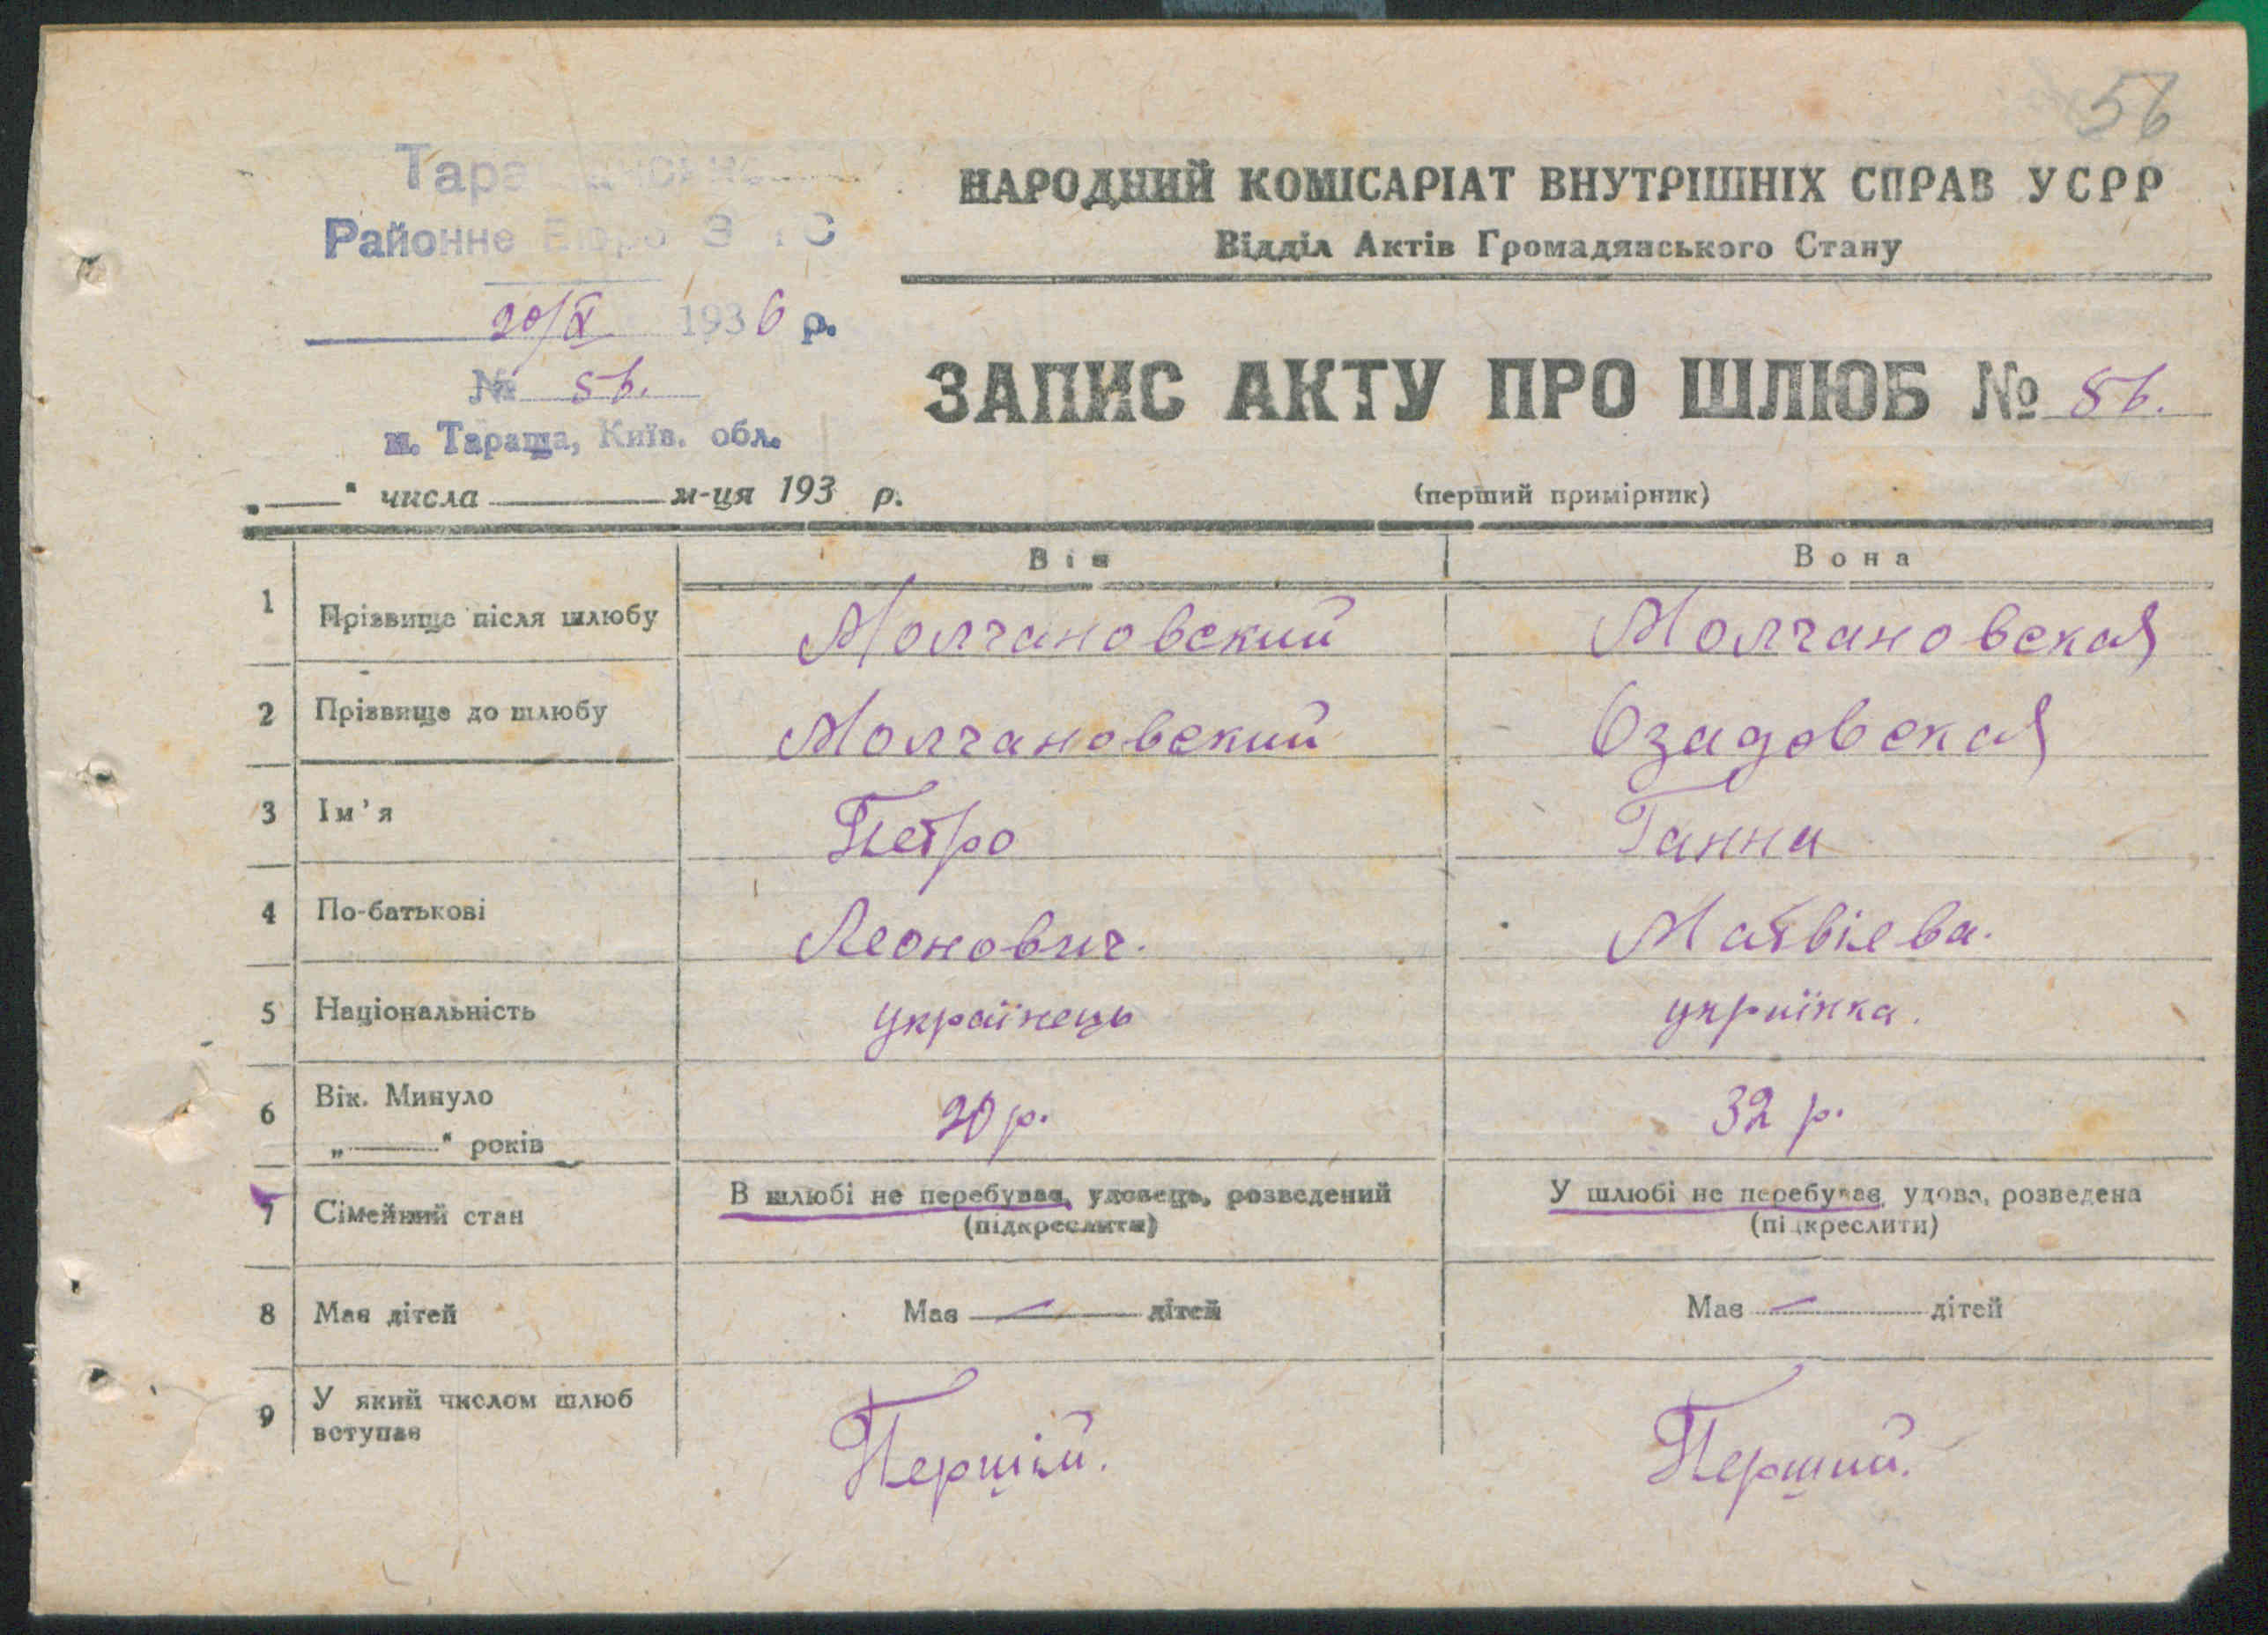 56
НАРОДНИЙ КОМІСАРІАТ ВНУТРІШНІХ СПРАВ УСРР
Відділ Актів Громадянського Стану
Районне Бюро
1936 р.
№ 56.
м. Тараща, Київ. обл.
ЗАПИС АКТУ ПРО ШЛЮБ № 56.
„ “ числа м-ця 193 р.
(перший примірник)
Він Вона
1 Прізвище після шлюбу Молчановский Молчановская
2 Прізвище до шлюбу Молчановский Озадовская
3 Ім'я Петро Ганна
4 По-батькові Леонович. Матвієва.
5 Національність українець українка.
6 Вік. Минуло „ “ років 20 р. 32 р.
7 Сімейний стан В шлюбі не перебував, удовець, розведений (підкреслити) У шлюбі не перебував, удова, розведена (підкреслити)
8 Має дітей Має — дітей Має — дітей
9 У який числом шлюб вступає Першій. Перший.